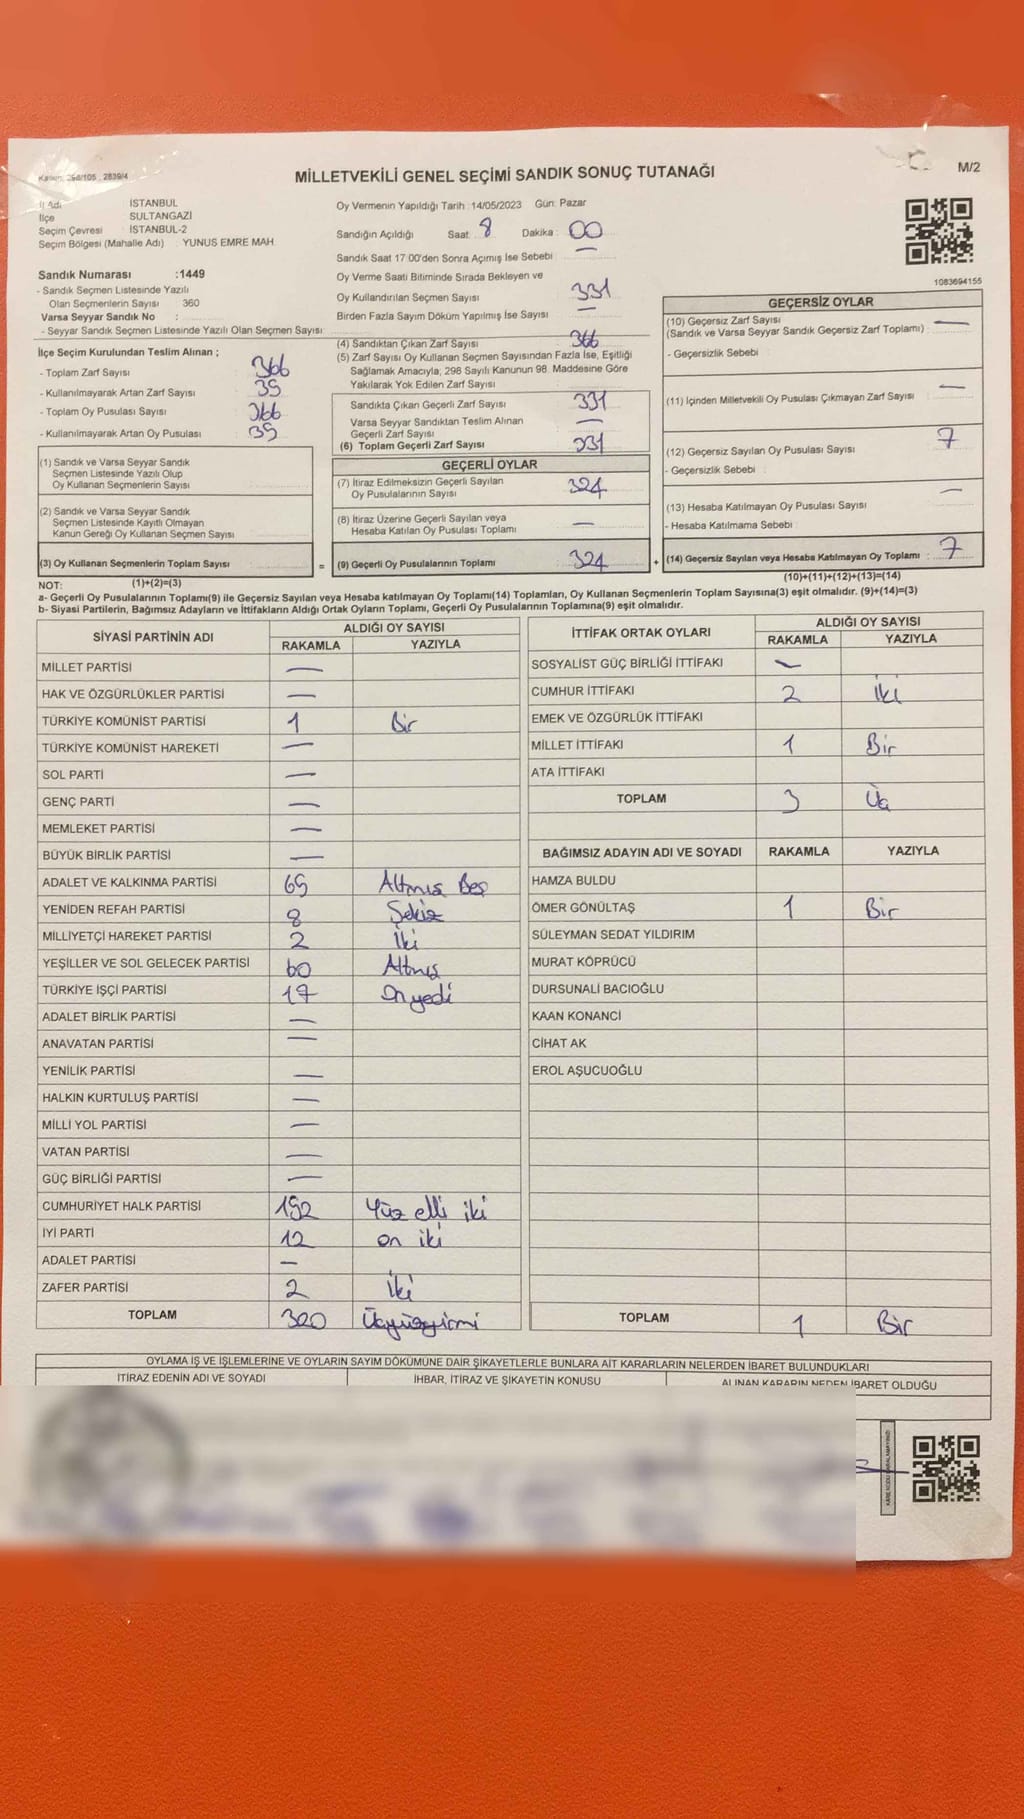 Kanun: 298/105 : 2839/4
MİLLETVEKİLİ GENEL SEÇİMİ SANDIK SONUÇ TUTANAĞI
M/2
İl Adı : İSTANBUL
İlçe SULTANGAZİ
Seçim Çevresi : İSTANBUL-2
Seçim Bölgesi (Mahalle Adı) : YUNUS EMRE MAH.
Sandık Numarası :1449
- Sandık Seçmen Listesinde Yazılı
Olan Seçmenlerin Sayısı 360
Varsa Seyyar Sandık No :
- Seyyar Sandık Seçmen Listesinde Yazılı Olan Seçmen Sayısı :
İlçe Seçim Kurulundan Teslim Alınan ;
- Toplam Zarf Sayısı : 366
- Kullanılmayarak Artan Zarf Sayısı : 35
- Toplam Oy Pusulası Sayısı : 366
- Kullanılmayarak Artan Oy Pusulası : 35
(1) Sandık ve Varsa Seyyar Sandık
Seçmen Listesinde Yazılı Olup
Oy Kullanan Seçmenlerin Sayısı :
(2) Sandık ve Varsa Seyyar Sandık
Seçmen Listesinde Kayıtlı Olmayan
Kanun Gereği Oy Kullanan Seçmen Sayısı :
(3) Oy Kullanan Seçmenlerin Toplam Sayısı :
Oy Vermenin Yapıldığı Tarih : 14/05/2023 Gün: Pazar
Sandığın Açıldığı Saat : 8 Dakika : 00
Sandık Saat 17:00'den Sonra Açılmış İse Sebebi : —
Oy Verme Saati Bitiminde Sırada Bekleyen ve
Oy Kullandırılan Seçmen Sayısı : 331
Birden Fazla Sayım Döküm Yapılmış İse Sayısı : —
(4) Sandıktan Çıkan Zarf Sayısı : 366
(5) Zarf Sayısı Oy Kullanan Seçmen Sayısından Fazla İse, Eşitliği
Sağlamak Amacıyla; 298 Sayılı Kanunun 98. Maddesine Göre
Yakılarak Yok Edilen Zarf Sayısı :
Sandıkta Çıkan Geçerli Zarf Sayısı : 331
Varsa Seyyar Sandıktan Teslim Alınan
Geçerli Zarf Sayısı : —
(6) Toplam Geçerli Zarf Sayısı : 331
GEÇERLİ OYLAR
(7) İtiraz Edilmeksizin Geçerli Sayılan
Oy Pusulalarının Sayısı : 324
(8) İtiraz Üzerine Geçerli Sayılan veya
Hesaba Katılan Oy Pusulası Toplamı : —
= (9) Geçerli Oy Pusulalarının Toplamı : 324
1083694155
GEÇERSİZ OYLAR
(10) Geçersiz Zarf Sayısı : —
(Sandık ve Varsa Seyyar Sandık Geçersiz Zarf Toplamı)
- Geçersizlik Sebebi :
(11) İçinden Milletvekili Oy Pusulası Çıkmayan Zarf Sayısı : —
(12) Geçersiz Sayılan Oy Pusulası Sayısı : 7
- Geçersizlik Sebebi :
(13) Hesaba Katılmayan Oy Pusulası Sayısı : —
- Hesaba Katılmama Sebebi :
+ (14) Geçersiz Sayılan veya Hesaba Katılmayan Oy Toplamı : 7
NOT: (1)+(2)=(3) (10)+(11)+(12)+(13)=(14)
a- Geçerli Oy Pusulalarının Toplamı(9) ile Geçersiz Sayılan veya Hesaba katılmayan Oy Toplamı(14) Toplamları, Oy Kullanan Seçmenlerin Toplam Sayısına(3) eşit olmalıdır. (9)+(14)=(3)
b- Siyasi Partilerin, Bağımsız Adayların ve İttifakların Aldığı Ortak Oyların Toplamı, Geçerli Oy Pusulalarının Toplamına(9) eşit olmalıdır.
SİYASİ PARTİNİN ADI ALDIĞI OY SAYISI
RAKAMLA YAZIYLA
MİLLET PARTİSİ —
HAK VE ÖZGÜRLÜKLER PARTİSİ —
TÜRKİYE KOMÜNİST PARTİSİ 1 Bir
TÜRKİYE KOMÜNİST HAREKETİ —
SOL PARTİ —
GENÇ PARTİ —
MEMLEKET PARTİSİ —
BÜYÜK BİRLİK PARTİSİ —
ADALET VE KALKINMA PARTİSİ 65 Altmış Beş
YENİDEN REFAH PARTİSİ 8 Sekiz
MİLLİYETÇİ HAREKET PARTİSİ 2 İki
YEŞİLLER VE SOL GELECEK PARTİSİ 60 Altmış
TÜRKİYE İŞÇİ PARTİSİ 17 Onyedi
ADALET BİRLİK PARTİSİ —
ANAVATAN PARTİSİ —
YENİLİK PARTİSİ —
HALKIN KURTULUŞ PARTİSİ —
MİLLİ YOL PARTİSİ —
VATAN PARTİSİ —
GÜÇ BİRLİĞİ PARTİSİ —
CUMHURİYET HALK PARTİSİ 152 Yüz elli iki
İYİ PARTİ 12 on iki
ADALET PARTİSİ —
ZAFER PARTİSİ 2 İki
TOPLAM 320 Üçyüzyirmi
İTTİFAK ORTAK OYLARI ALDIĞI OY SAYISI
RAKAMLA YAZIYLA
SOSYALİST GÜÇ BİRLİĞİ İTTİFAKI —
CUMHUR İTTİFAKI 2 İki
EMEK VE ÖZGÜRLÜK İTTİFAKI
MİLLET İTTİFAKI 1 Bir
ATA İTTİFAKI
TOPLAM 3 Üç
BAĞIMSIZ ADAYIN ADI VE SOYADI RAKAMLA YAZIYLA
HAMZA BULDU
ÖMER GÖNÜLTAŞ 1 Bir
SÜLEYMAN SEDAT YILDIRIM
MURAT KÖPRÜCÜ
DURSUNALİ BACIOĞLU
KAAN KONANCİ
CİHAT AK
EROL AŞUCUOĞLU
TOPLAM 1 Bir
OYLAMA İŞ VE İŞLEMLERİNE VE OYLARIN SAYIM DÖKÜMÜNE DAİR ŞİKAYETLERLE BUNLARA AİT KARARLARIN NELERDEN İBARET BULUNDUKLARI
İTİRAZ EDENİN ADI VE SOYADI İHBAR, İTİRAZ VE ŞİKAYETİN KONUSU ALINAN KARARIN NEDEN İBARET OLDUĞU